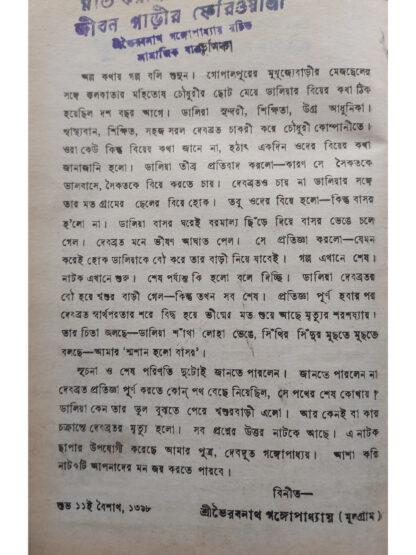 জীবন গাড়ীর ফেরিওয়ালা
শ্রীভৈরবনাথ গঙ্গোপাধ্যায় রচিত
সামাজিক যাত্রা
অল্প কথায় গল্প বলি শুনুন। গোপালপুরের মুখুজ্যেবাড়ীর মেজছেলের
সঙ্গে কলকাতার মহিতোষ চৌধুরীর ছোট মেয়ে ডালিয়ার বিয়ের কথা ঠিক
হয়েছিল দশ বছর আগে। ডালিয়া সুন্দরী, শিক্ষিতা, উগ্র আধুনিকা।
স্বাস্থ্যবান, শিক্ষিত, সহজ সরল দেবব্রত চাকরী করে চৌধুরী কোম্পানীতে।
ওরা কেউ কিন্তু বিয়ের কথা জানে না, হঠাৎ একদিন ওদের বিয়ের কথা
জানাজানি হলো। ডালিয়া তীব্র প্রতিবাদ করলো—কারণ সে সৈকতকে
ভালবাসে, সৈকতকে বিয়ে করতে চায়। দেবব্রতও চায় না ডালিয়ার সঙ্গে
তার মত গ্রামের ছেলের বিয়ে হোক। তবু ওদের বিয়ে হলো—কিন্তু বাসর
হ'লো না। ডালিয়া বাসর ঘরেই বরমাল্য ছিঁড়ে দিয়ে বাসর ভেঙে চলে
গেল। দেবব্রত মনে ভীষণ আঘাত পেল। সে প্রতিজ্ঞা করলো—যেমন
করেই হোক ডালিয়াকে বৌ করে তার বাড়ী নিয়ে যাবেই। গল্প এখানে শেষ।
নাটক এখানে শুরু। শেষ পর্য্যন্ত কি হলো বলে দিচ্ছি। ডালিয়া দেবব্রতর
বৌ হয়ে শ্বশুর বাড়ী গেল—কিন্তু তখন সব শেষ। প্রতিজ্ঞা পূর্ণ হবার পর
দেবব্রত স্বার্থপরতার শরে বিদ্ধ হয়ে ভীষ্মের মত শুয়ে আছে মৃত্যুর শরশয্যায়।
তার চিতা জলছে—ডালিয়া শাঁখা লোহা ভেঙে, সিঁথির সিঁদুর মুছতে মুছতে
বলছে—আমার 'শ্মশান হলো বাসর'।
সূচনা ও শেষ পরিণতি দুটোই জানতে পারলেন। জানতে পারলেন না
দেবব্রত প্রতিজ্ঞা পূর্ণ করতে কোন্ পথ বেছে নিয়েছিল, সে পথের শেষ কোথায়?
ডালিয়া কেন তার ভুল বুঝতে পেরে শ্বশুরবাড়ী এলো। আর কেনই বা কার
চক্রান্তে দেবব্রতর মৃত্যু হলো। সব প্রশ্নের উত্তর নাটকে আছে। এ নাটক
ছাপার উপযোগী করেছে আমার পুত্র, দেবদূত গঙ্গোপাধ্যায়। আশা করি
নাটকটি আপনাদের মন জয় করতে পারবে।
বিনীত—
শুভ ১১ই বৈশাখ, ১৩৯৮ শ্রীভৈরবনাথ গঙ্গোপাধ্যায় (মূলগ্রাম)